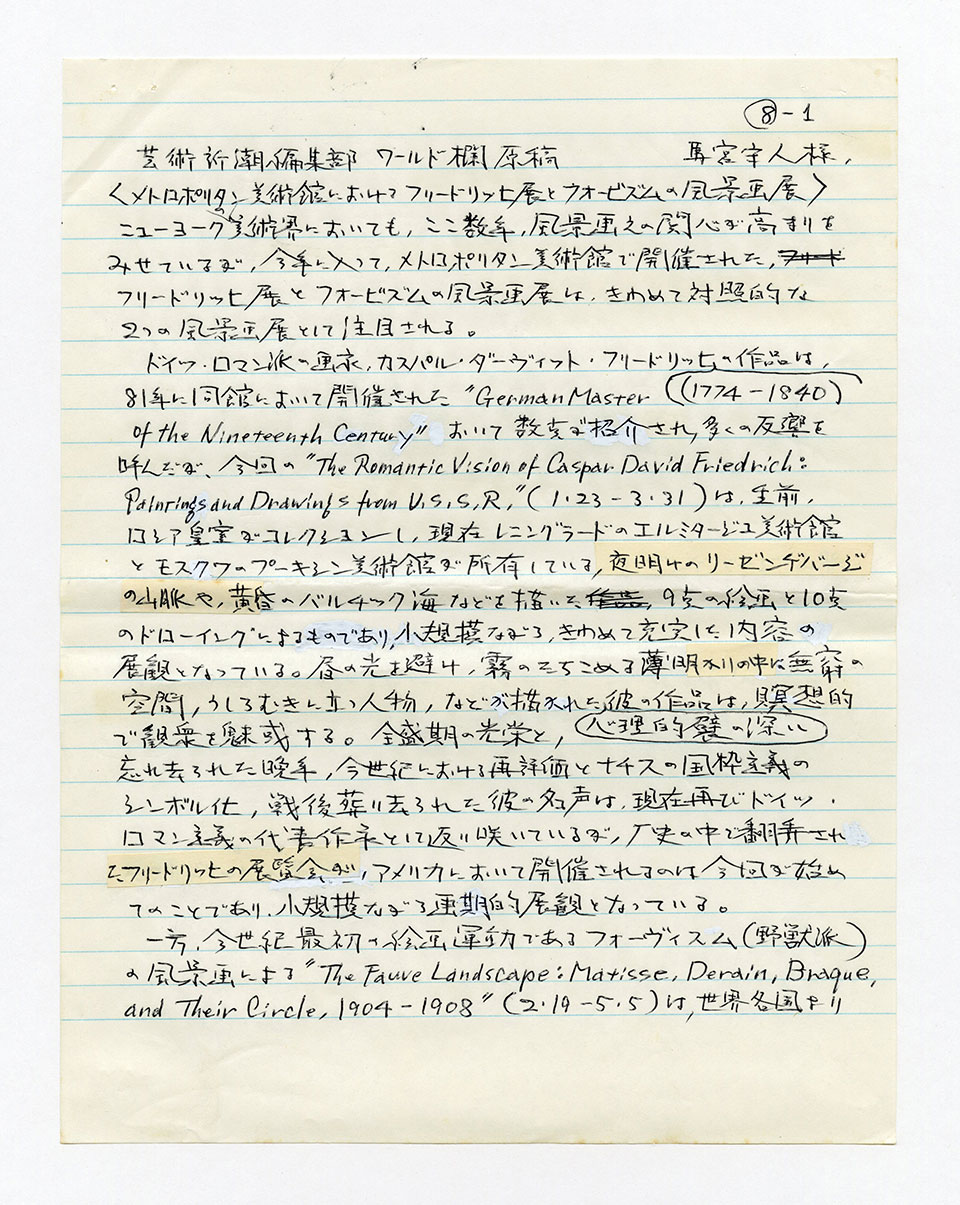 ⑧-1
芸術新潮編集部 ワールド欄原稿 馬宮宇人様,
〈メトロポリタン美術館におけるフリードリッヒ展とフォービズムの風景画展〉
ニューヨークの美術界においても, ここ数年, 風景画えの関心が高まりを
みせているが, 今年に入って, メトロポリタン美術館で開催された,
フリードリッヒ展とフォービズムの風景画展は, きわめて対照的な
2つの風景画展として注目される。
ドイツ・ロマン派の画家, カスパル・ダーヴィット・フリードリッヒの作品は,
81年に同館において開催された “German Master ((1774-1840)
of the Nineteenth Century” おいて数点が紹介され, 多くの反響を
呼んだが, 今回の “The Romantic Vision of Caspar David Friedrich:
Paintings and Drawings from U.S.S.R,” (1・23-3・31)は, 生前,
ロシア皇室がコレクションし, 現在レニングラードのエルミタージュ美術館
とモスクワのプーキシン美術館が所有している, 夜明けのリーゼンゲバージ
の山脈や, 黄昏のバルチック海などを描いた 9点の絵画と10点
のドローイングによるものであり, 小規模ながら, きわめて充実した内容の
展観となっている。昼の光を避け, 霧のたちこめる薄明かりの中に無窮の
空間, うしろむきに立つ人物, などが描かれた彼の作品は, 瞑想的
で観衆を魅惑する。全盛期の光栄と, 心理的襞の深い
忘れ去られた晩年, 今世紀における再評価とナチスの国粋主義の
シンボル化, 戦後葬り去られた彼の名声は, 現在再びドイツ・
ロマン主義の代表作家として返り咲いているが, 歴史の中で翻弄され
たフリードリッヒの展覧会が, アメリカにおいて開催されるのは今回が始め
てのことであり, 小規模ながら画期的展観となっている。
一方, 今世紀最初の絵画運動であるフォーヴィスム(野獣派)
の風景画による “The Fauve Landscape: Matisse, Derain, Braque,
and Their Circle, 1904-1908” (2・19-5・5)は, 世界各国より